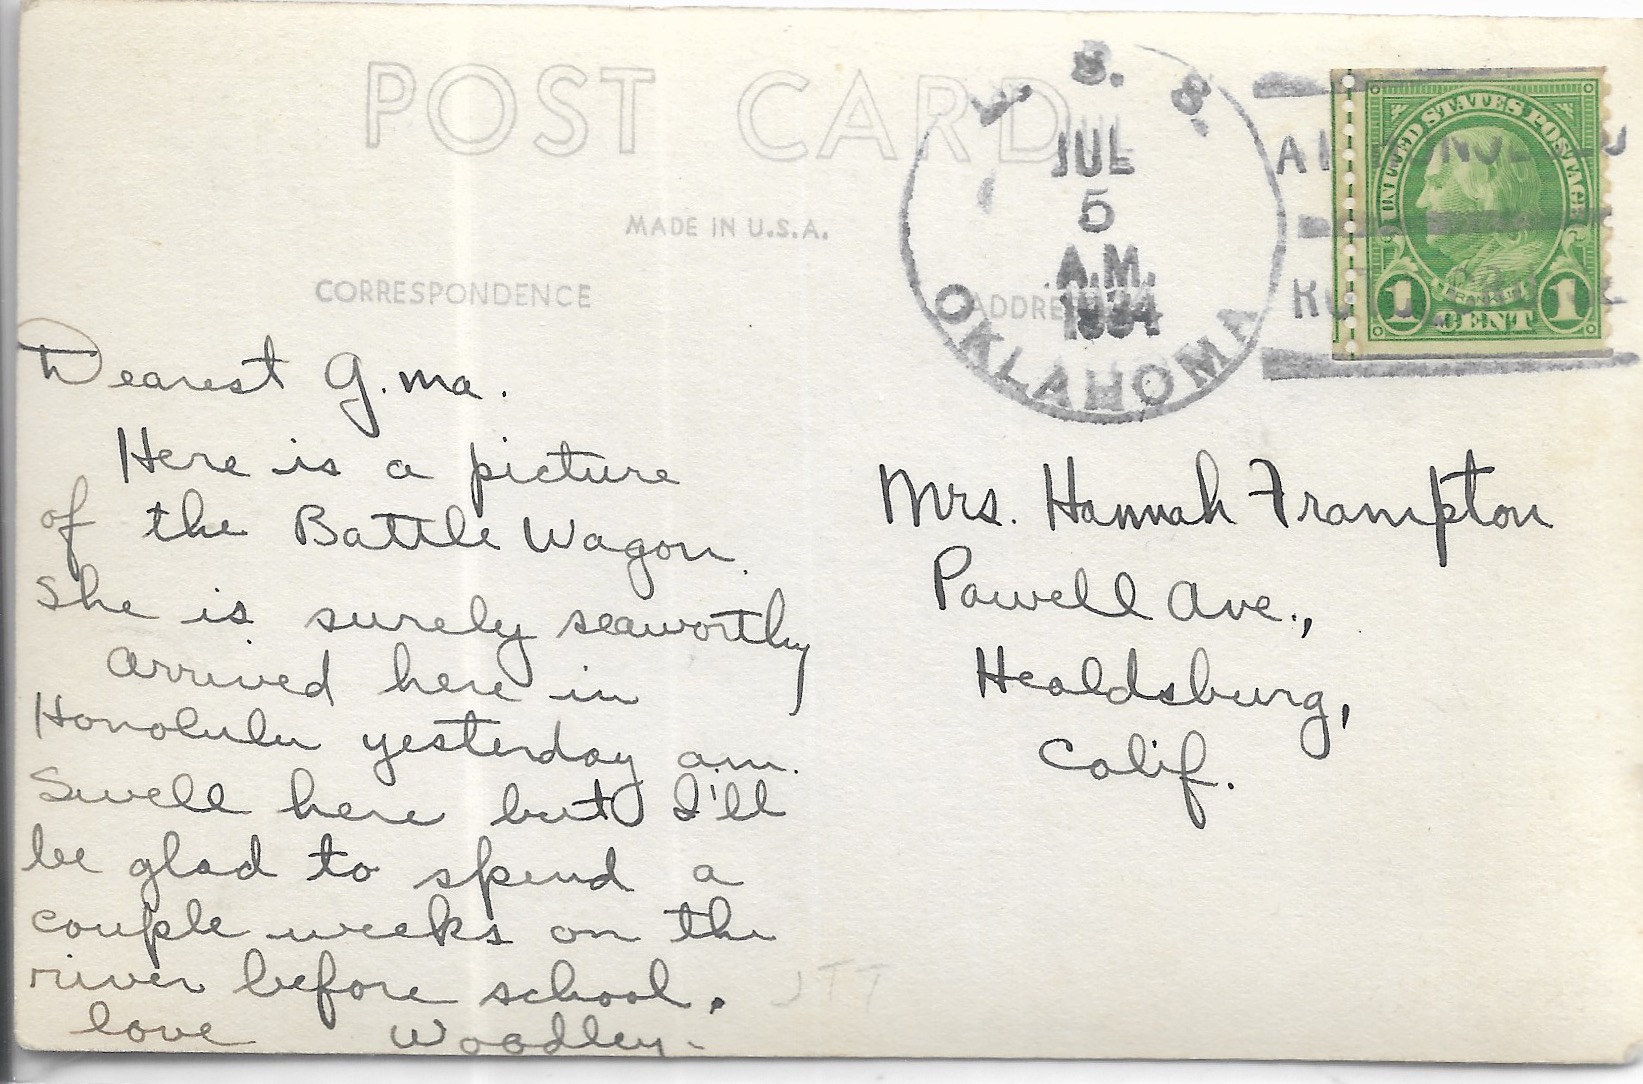 POST CARD
MADE IN U.S.A.
CORRESPONDENCE
U. S. S.
JUL
5
A.M.
1934
OKLAHOMA
AT HONOLULU
UNITED STATES POSTAGE
FRANKLIN
1 CENT 1
Dearest G.ma.
Here is a picture
of the Battle Wagon.
She is surely seaworthy
Arrived here in
Honolulu yesterday am.
Swell here but I'll
be glad to spend a
couple weeks on the
river before school.
love Woodley.
Mrs. Hannah Frampton
Powell Ave.,
Healdsburg,
Calif.
JTT